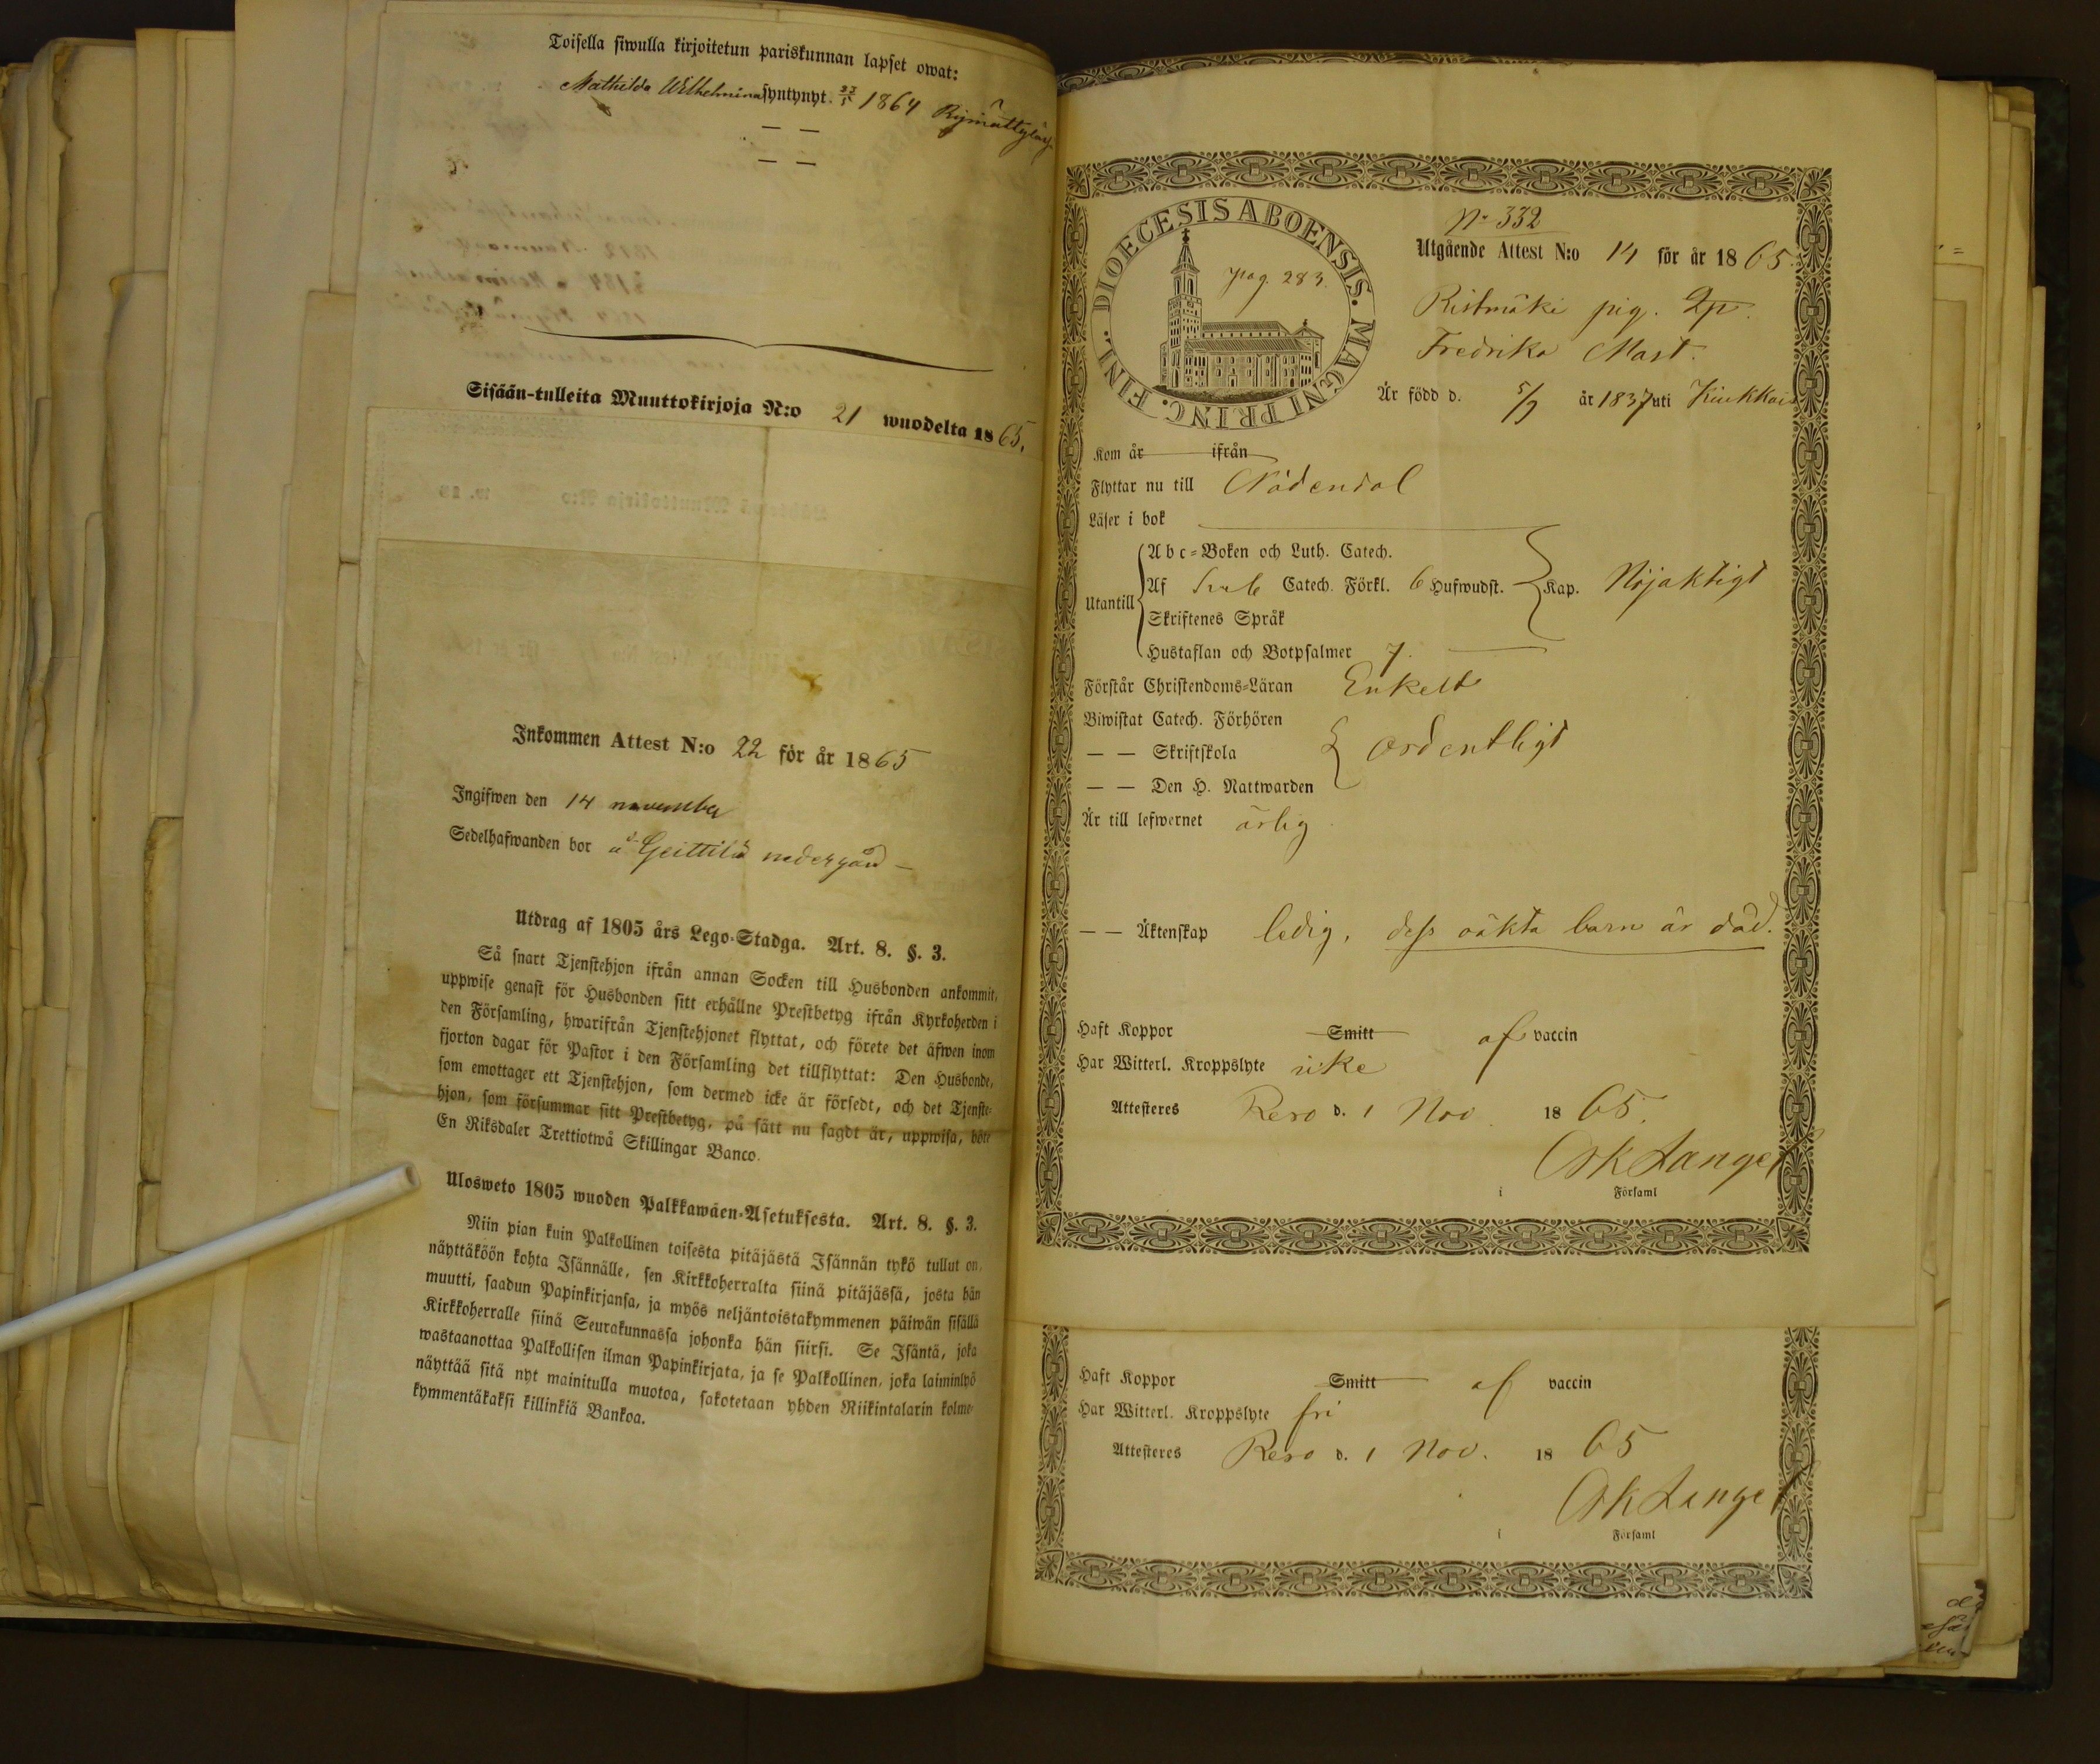 Toisella siwulla kirjoitetun pariskunnan lapset owat:
Mathilda Wilhelmina syntynyt 23/5 1864 Rymättylass
— —
— —
Sisään-tulleita Muuttokirjoja N:o 21 wuodelta 1865.
Inkommen Attest N:o 22 för år 1865
Ingifwen den 14 november
Sedelhafwanden bor å Geittilä nedergård —
Utdrag af 1805 års Lego-Stadga. Art. 8. §. 3.
Så snart Tjenstehjon ifrån annan Socken till Husbonden ankommit,
uppwise genast för Husbonden sitt erhållne Prestbetyg ifrån Kyrkoherden i
den Församling, hwarifrån Tjenstehjonet flyttat, och förete det äfwen inom
fjorton dagar för Pastor i den Församling det tillflyttat: Den Husbonde,
som emottager ett Tjenstehjon, som dermed icke är försedt, och det Tjenste-
hjon, som försummar sitt Prestbetyg, på sätt nu sagdt är, uppwisa, böte
En Riksdaler Trettiotwå Skillingar Banco.
Ulosweto 1805 wuoden Palkkawäen-Asetuksesta. Art. 8. §. 3.
Niin pian kuin Palkollinen toisesta pitäjästä Isännän tykö tullut on,
näyttäköön kohta Isännälle, sen Kirkkoherralta siinä pitäjässä, josta hän
muutti, saadun Papinkirjansa, ja myös neljäntoistakymmenen päiwän sisällä
Kirkkoherralle siinä Seurakunnassa johonka hän siirsi. Se Isäntä, joka
wastaanottaa Palkollisen ilman Papinkirjata, ja se Palkollinen, joka laiminlyö
näyttää sitä nyt mainitulla muotoa, sakotetaan yhden Riikintalarin kolme-
kymmentäkaksi killinkiä Bankoa.
DIOECESIS ABOENSIS. MAGNI PRINC. FINL.
pag. 283.
No 332
Utgående Attest N:o 14 för år 1865.
Ristmäki pig. Dp.
Fredrika Mast.
Är född d. 5/9 år 1837 uti Kiukkais
Kom år ifrån
Flyttar nu till Nådendal
Läser i bok
Utantill
Abc-Boken och Luth. Catech.
Af Sveb Catech. Förkl. 6 Hufwudst. Kap. Nöjaktigt
Skriftenes Språk
Hustaflan och Botpsalmer 7.
Förstår Christendoms-Läran Enkelt
Biwistat Catech. Förhören
— — Skriftskola ordentligt
— — Den H. Nattwarden
Är till lefwernet ärlig
— — Äktenskap ledig, dess oäkta barn är död.
Haft Koppor Smitt af vaccin
Har Witterl. Kroppslyte icke
Attesteres Reso d. 1 Nov. 1865.
Ork Langel
i Församl
Haft Koppor Smitt af vaccin
Har Witterl. Kroppslyte fri
Attesteres Reso d. 1 Nov. 1865
Ork Langel
i Församl